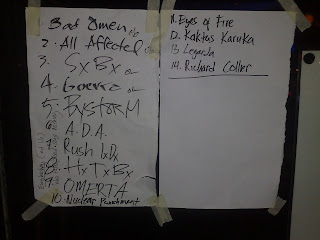 Bad Omen
2. All Affected
3. SxBx
4. Guerra
5. BystorM
6. A.D.A.
7. Rush
8. HxTxBx
9. OMERTA
10. Nuclear Punchment
11. Eyes of Fire
12. Kaktus Karuka
13. Legarda
14. Richard Coller